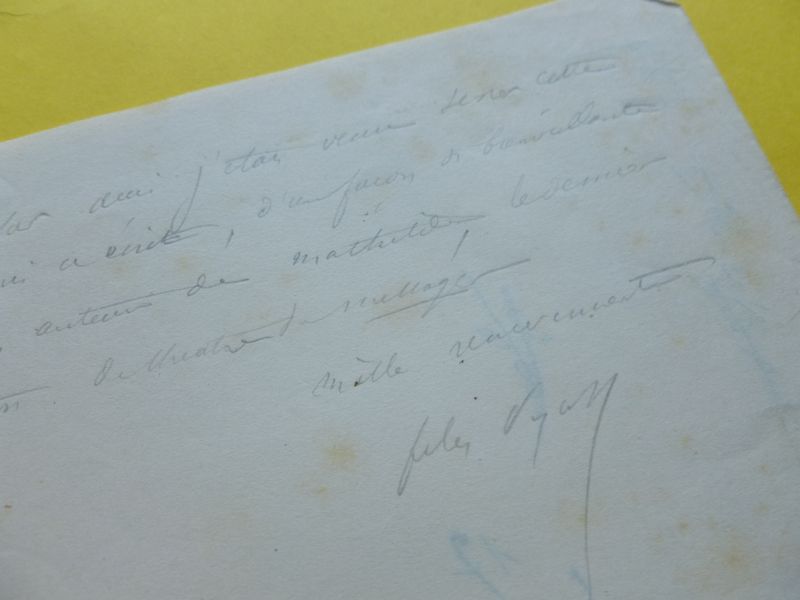 ami j'étais venu serrer cette
a écrit, d'une façon si bienveillante
auteurs de Mathilde, le dernier
de théâtre du messager
mille remerciements
felix Pyat
17